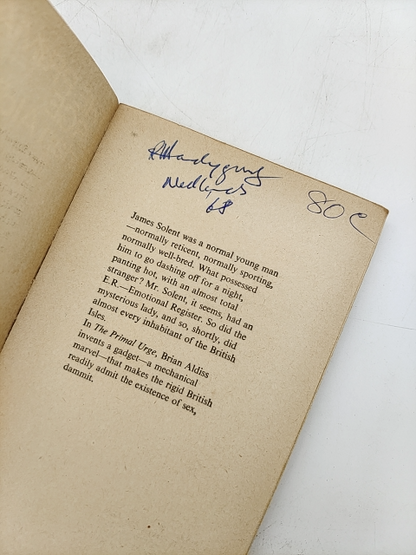 Nedlands
68
80c
James Solent was a normal young man
—normally reticent, normally sporting,
normally well-bred. What possessed
him to go dashing off for a night,
panting hot, with an almost total
stranger? Mr. Solent, it seems, had an
E.R.—Emotional Register. So did the
mysterious lady, and so, shortly, did
almost every inhabitant of the British
Isles.
In The Primal Urge, Brian Aldiss
invents a gadget—a mechanical
marvel—that makes the rigid British
readily admit the existence of sex,
dammit.